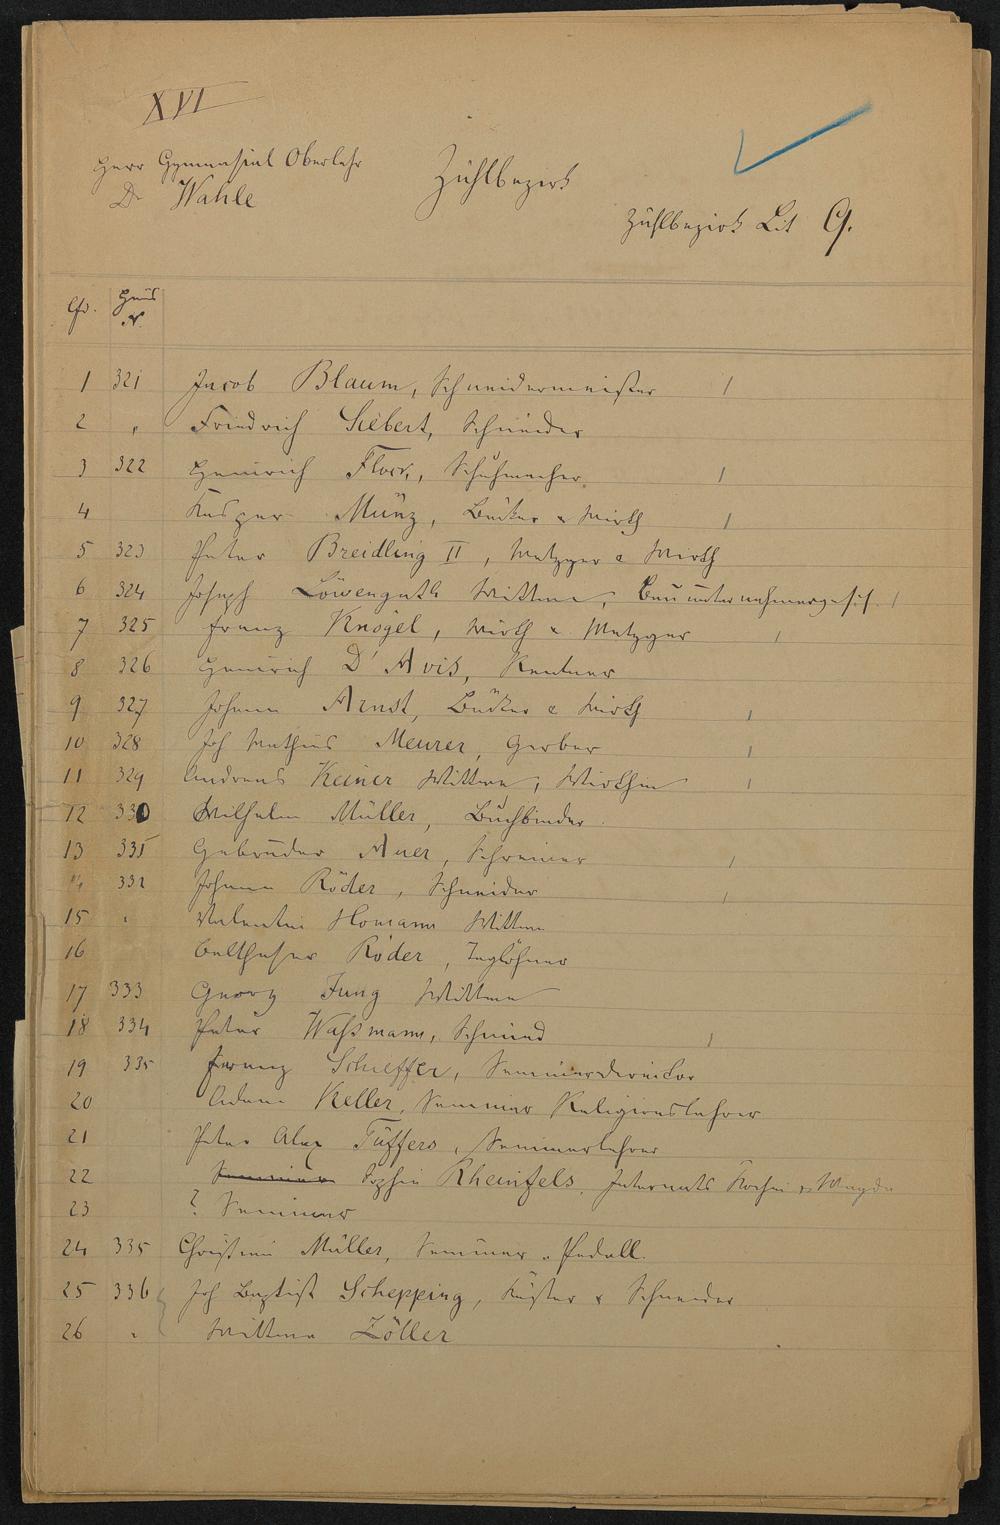 XVI
Herr Gymnasial Oberlehr
Dr Wahle
Zählbezirk
Zählbezirk Lit G.
Lfd. Haus
N.
1 321 Jacob Blaum, Schneidermeister 1
2 " Friedrich Siebert, Schneider
3 322 Heinrich Flock, Schuhmacher. 1
4 Kasper Münz, Bäcker u Wirth 1
5 323 Peter Breidling II, Metzger u Wirth
6 324 Joseph Löwenguth Wittwe, Bauunternehmergesch. 1
7 325 Franz Knögel, Wirth u. Metzger 1
8 326 Heinrich D'Avis, Rentner
9 327 Johann Arnst, Bäcker u Wirth 1
10 328 Joh Mathias Meurer, Gerber 1
11 329 Andreas Keiner Wittwe, Wirthin 1
12 330 Wilhelm Müller, Buchbinder
13 331 Gebrüder Auer, Schreiner 1
14 332 Johann Röder, Schneider 1
15 " Valentin Homann Wittwe
16 Balthaser Röder, Taglöhner
17 333 Georg Jung Wittwe
18 334 Peter Waßmann, Schmied 1
19 335 Franz Schieffer, Seminardirector
20 Adam Keller, Seminar Religionslehrer
21 Peter Alex Tüffers, Seminarlehrer
22 Seminar Sophie Rheinfels, Internats Köchin u Mägde
23 ? Seminar
24 335 Christian Müller, Seminar Pedell.
25 336 Joh Baptist Schepping, Küster u Schneider
26 " Wittwe Zöller